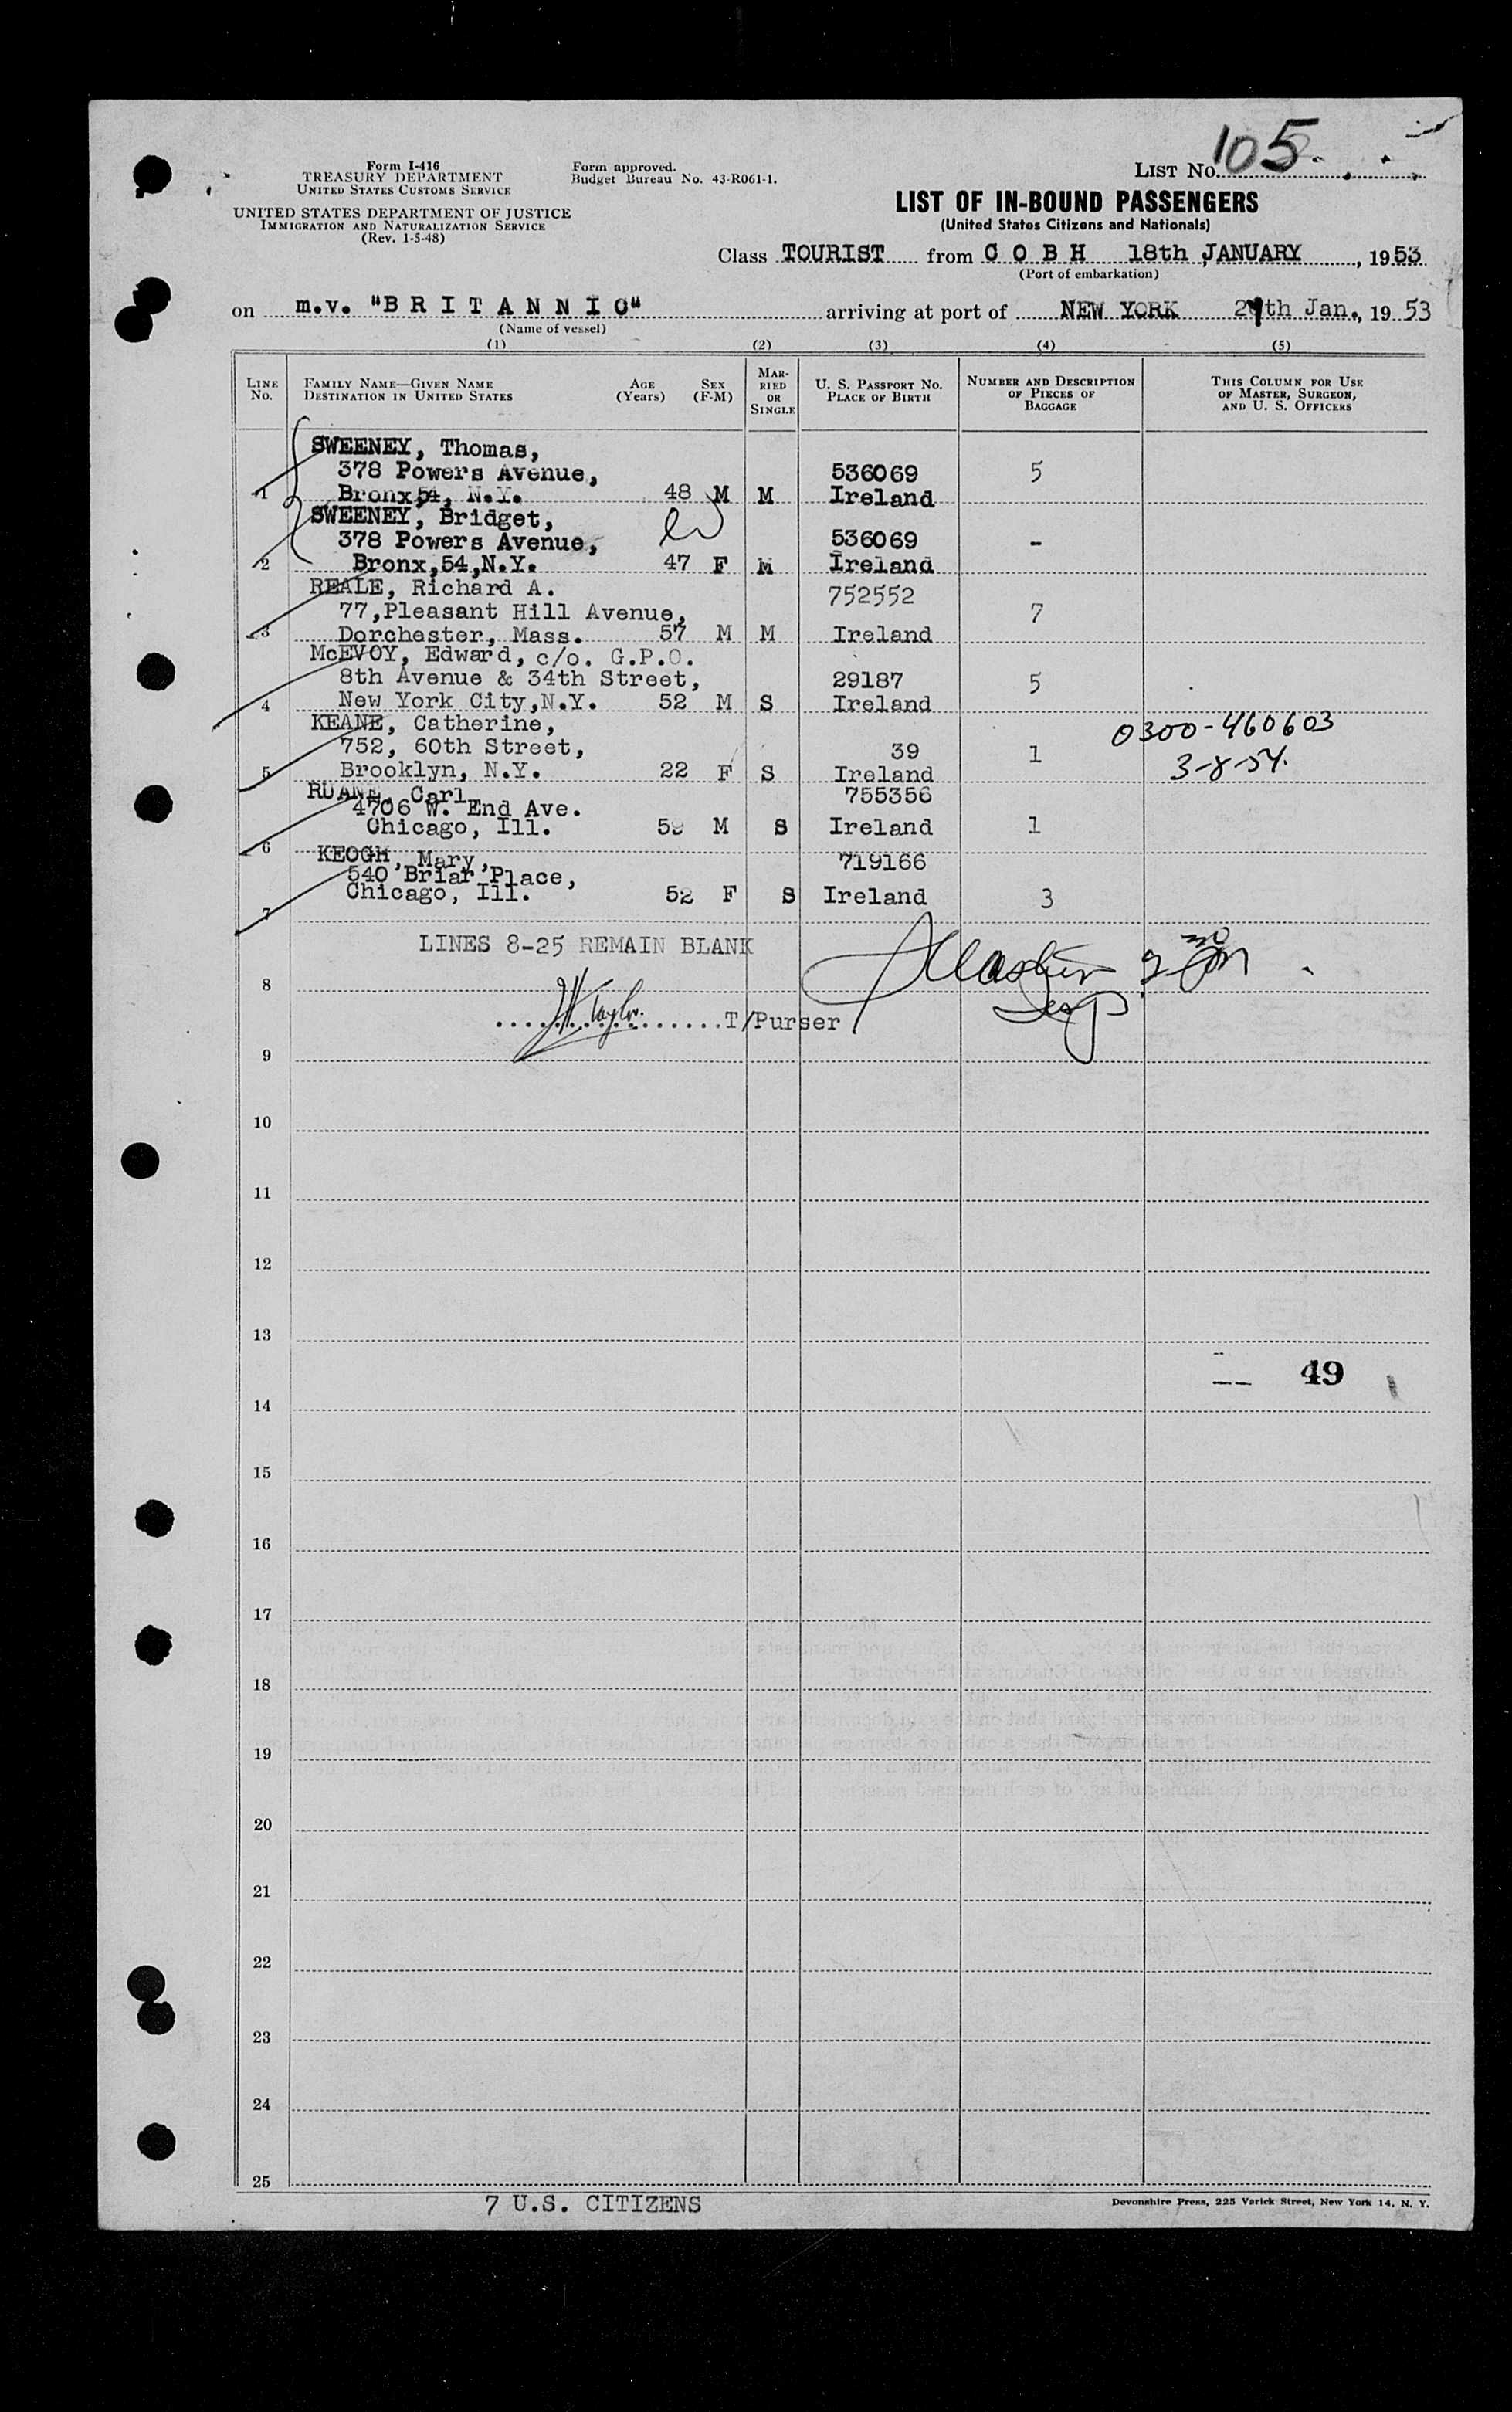 Form I-416
TREASURY DEPARTMENT
UNITED STATES CUSTOMS SERVICE
UNITED STATES DEPARTMENT OF JUSTICE
IMMIGRATION AND NATURALIZATION SERVICE
(Rev. 1-5-48)
Form approved.
Budget Bureau No. 43-R061-1.
LIST No. 105
LIST OF IN-BOUND PASSENGERS
(United States Citizens and Nationals)
Class TOURIST from C O B H 18th JANUARY, 1953
(Port of embarkation)
on m.v. "B R I T A N N I C" arriving at port of NEW YORK Jan., 1953
(Name of vessel)
(1) (2) (3) (4) (5)
LINE No.
FAMILY NAME—GIVEN NAME
DESTINATION IN UNITED STATES
AGE (Years)
SEX (F-M)
MARRIED OR SINGLE
U. S. PASSPORT NO.
PLACE OF BIRTH
NUMBER AND DESCRIPTION OF PIECES OF BAGGAGE
THIS COLUMN FOR USE OF MASTER, SURGEON, AND U. S. OFFICERS
SWEENEY, Thomas,
378 Powers Avenue, 536069 5
1 Bronx,54, N.Y. 48 M M Ireland
SWEENEY, Bridget,
378 Powers Avenue, 536069 -
2 Bronx,54,N.Y. 47 F M Ireland
REALE, Richard A. 752552
77,Pleasant Hill Avenue, 7
3 Dorchester, Mass. 57 M M Ireland
McEVOY, Edward, c/o. G.P.O.
8th Avenue & 34th Street, 29187 5
4 New York City,N.Y. 52 M S Ireland
KEANE, Catherine, 0300-460603
752, 60th Street, 39 1 3-8-54.
5 Brooklyn, N.Y. 22 F S Ireland
RUANE, Carl 755356
4706 W. End Ave.
Chicago, Ill. M S Ireland 1
6
KEOGH, Mary, 719166
540 Briar Place,
Chicago, Ill. 52 F S Ireland 3
7
LINES 8-25 REMAIN BLANK
8
Taylor. T/Purser
9
10
11
12
13
49
14
15
16
17
18
19
20
21
22
23
24
25
7 U.S. CITIZENS
Devonshire Press, 225 Varick Street, New York 14, N. Y.